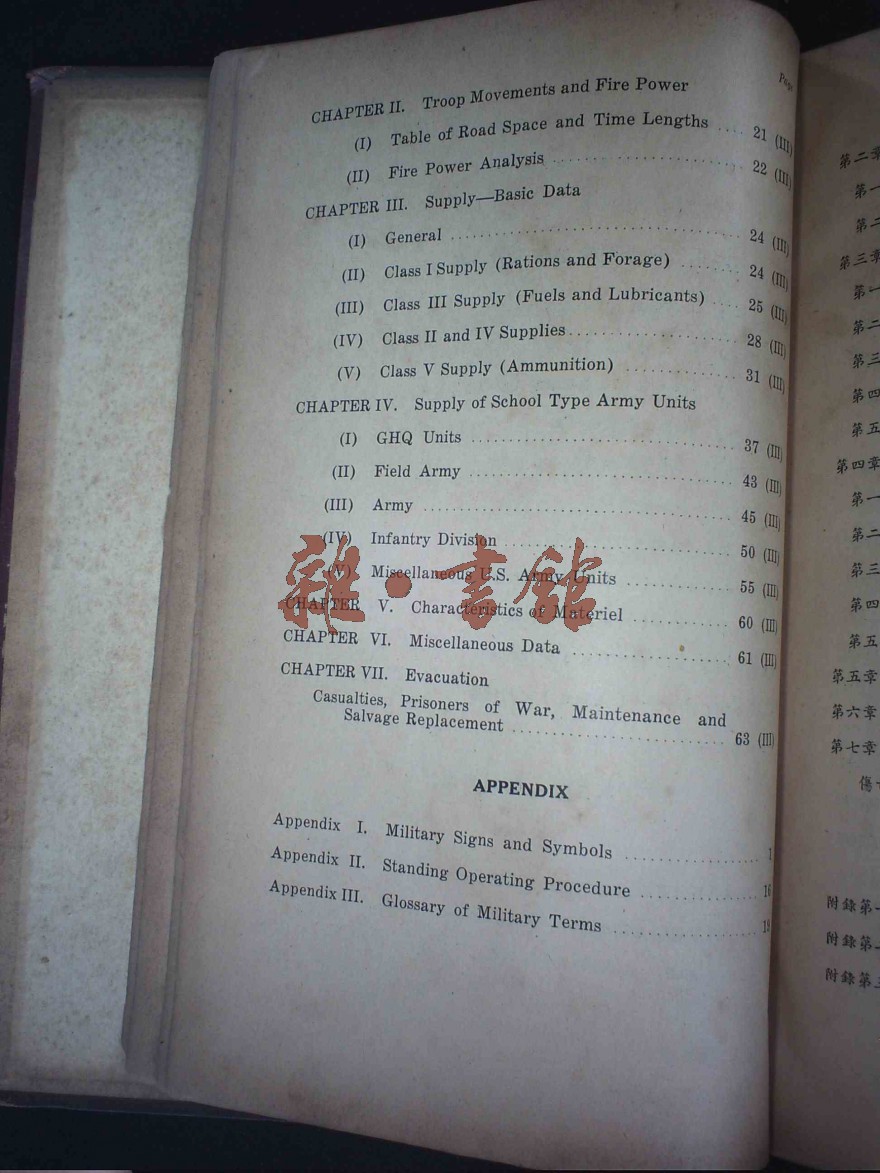 Page
CHAPTER II. Troop Movements and Fire Power
(I) Table of Road Space and Time Lengths .... 21 (III)
(II) Fire Power Analysis .......................... 22 (III)
CHAPTER III. Supply—Basic Data
(I) General ...................................... 24 (III)
(II) Class I Supply (Rations and Forage) ........ 24 (III)
(III) Class III Supply (Fuels and Lubricants) .... 25 (III)
(IV) Class II and IV Supplies..................... 28 (III)
(V) Class V Supply (Ammunition) ............... 31 (III)
CHAPTER IV. Supply of School Type Army Units
(I) GHQ Units .................................. 37 (III)
(II) Field Army .................................. 43 (III)
(III) Army ........................................ 45 (III)
(IV) Infantry Division ............................ 50 (III)
(V) Miscellaneous U.S. Army Units ............. 55 (III)
CHAPTER V. Characteristics of Materiel ............ 60 (III)
CHAPTER VI. Miscellaneous Data .................... 61 (III)
CHAPTER VII. Evacuation
Casualties, Prisoners of War, Maintenance and
Salvage Replacement ........................... 63 (III)
APPENDIX
Appendix I. Military Signs and Symbols .................. 1
Appendix II. Standing Operating Procedure .............. 16
Appendix III. Glossary of Military Terms .................. 19
雜·書館
第二章
第一
第二
第三章
第一
第二
第三
第四
第五
第四章
第一
第二
第三
第四
第五
第五章
第六章
第七章
傷
附錄第
附錄第
附錄第